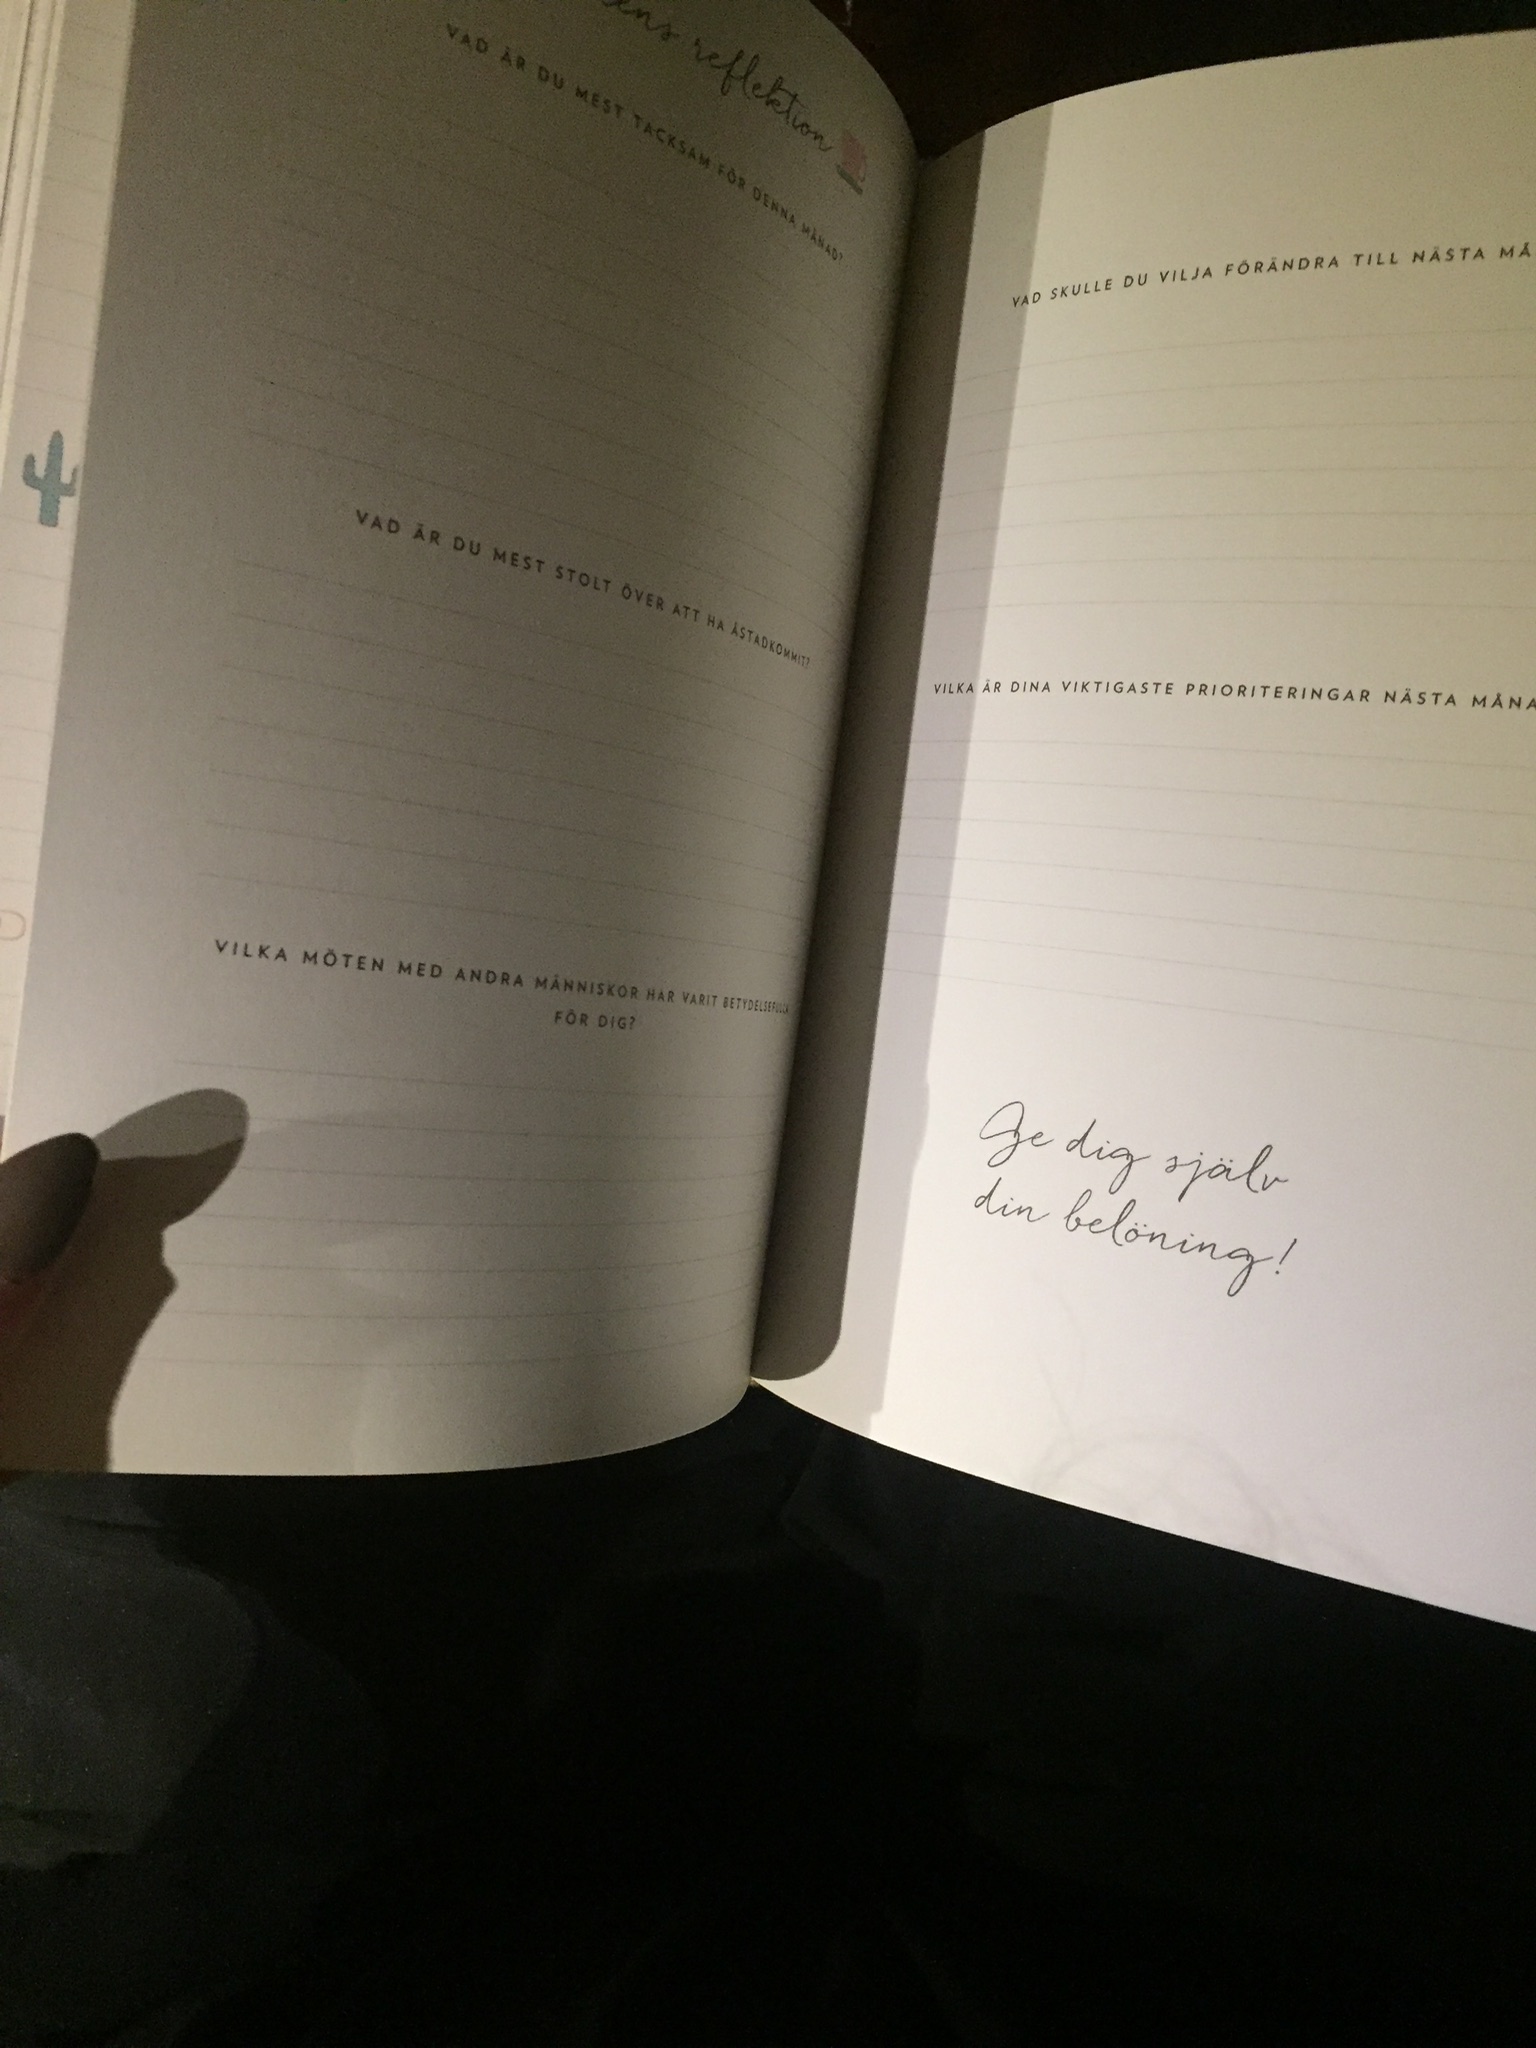 reflektion
VAD ÄR DU MEST TACKSAM FÖR DENNA MÅNAD?
VAD ÄR DU MEST STOLT ÖVER ATT HA ÅSTADKOMMIT?
VILKA MÖTEN MED ANDRA MÄNNISKOR HAR VARIT BETYDELSEFULLA
FÖR DIG?
VAD SKULLE DU VILJA FÖRÄNDRA TILL NÄSTA MÅ
VILKA ÄR DINA VIKTIGASTE PRIORITERINGAR NÄSTA MÅNA
Ge dig själv
din belöning!